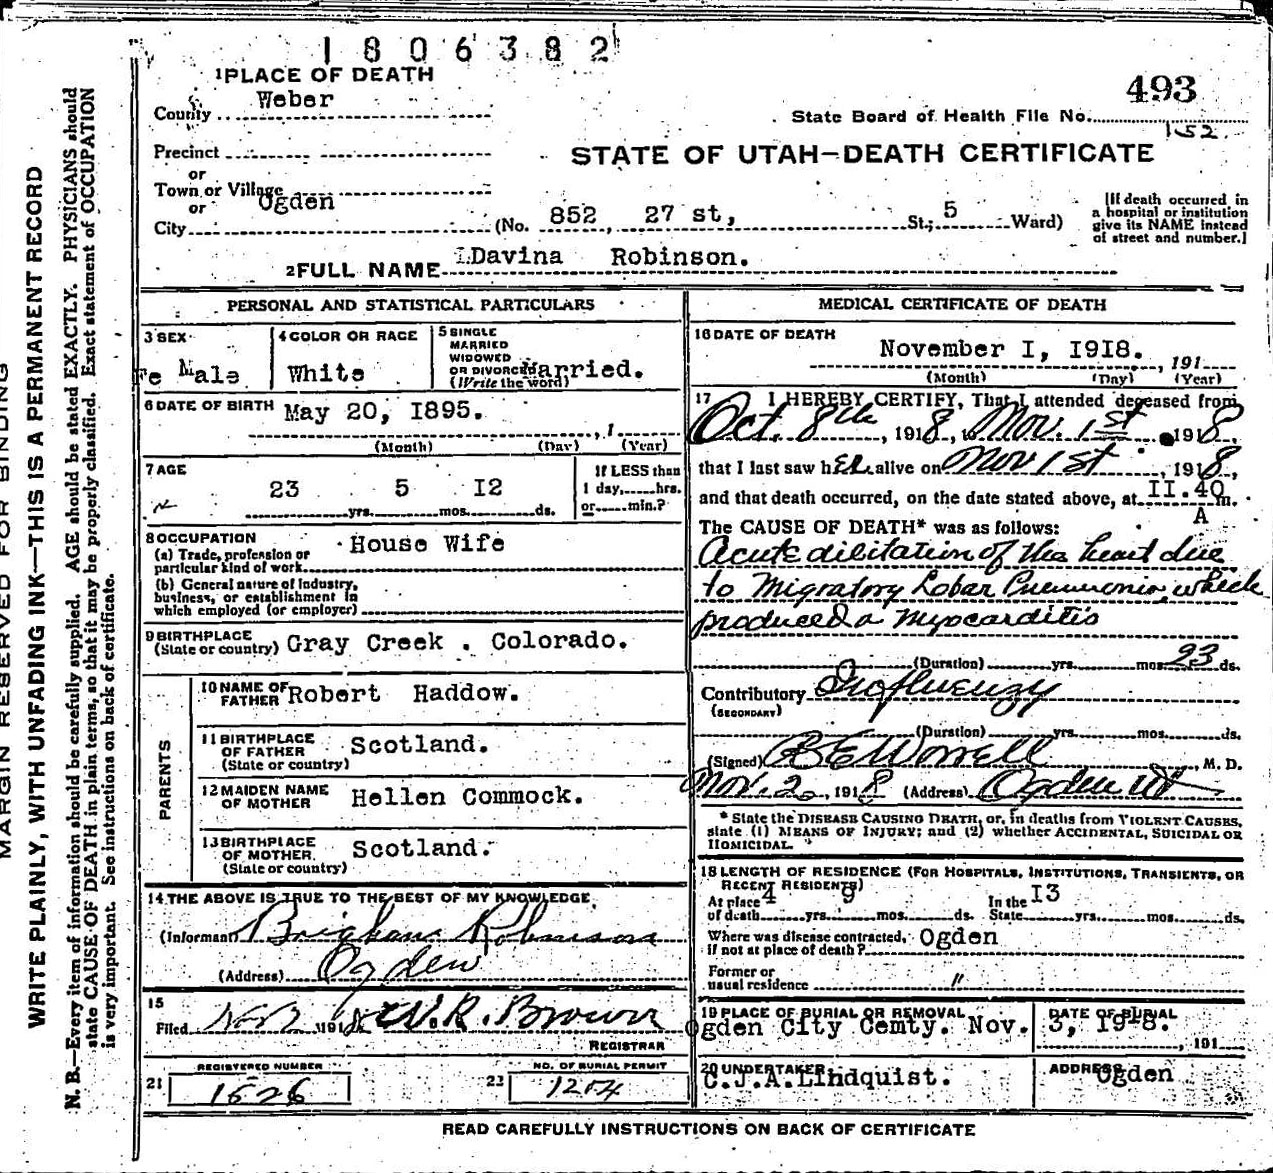 1806382
1 PLACE OF DEATH
493
County Weber
State Board of Health File No.
152.
Precinct
STATE OF UTAH—DEATH CERTIFICATE
or
Town or Village
or
Ogden
City (No. 852, 27 st, St; 5 Ward)
[If death occurred in
a hospital or institution
give its NAME instead
of street and number.]
2 FULL NAME Davina Robinson.
PERSONAL AND STATISTICAL PARTICULARS
3 SEX
Fe Male
4 COLOR OR RACE
White
5 SINGLE
MARRIED
WIDOWED
OR DIVORCED
(Write the word)
Married.
6 DATE OF BIRTH May 20, I895.
, 1
(Month) (Day) (Year)
7 AGE
23 yrs. 5 mos. I2 ds.
If LESS than
1 day, hrs.
or min.?
8 OCCUPATION
(a) Trade, profession or
particular kind of work House Wife
(b) General nature of industry,
business, or establishment in
which employed (or employer)
9 BIRTHPLACE
(State or country) Gray Creek . Colorado.
PARENTS
10 NAME OF
FATHER Robert Haddow.
11 BIRTHPLACE
OF FATHER
(State or country) Scotland.
12 MAIDEN NAME
OF MOTHER Hellen Commock.
13 BIRTHPLACE
OF MOTHER
(State or country) Scotland.
14 THE ABOVE IS TRUE TO THE BEST OF MY KNOWLEDGE
(Informant) Brigham Robinson
(Address) Ogden
15
Filed Nov 2 1918 W. R. Brown
REGISTRAR
21 REGISTERED NUMBER
1526
22 NO. OF BURIAL PERMIT
1204
MEDICAL CERTIFICATE OF DEATH
16 DATE OF DEATH
November I, I9I8. , 191
(Month) (Day) (Year)
17 I HEREBY CERTIFY, That I attended deceased from
Oct. 8th, 1918, to Nov. 1st 1918,
that I last saw her alive on Nov 1st, 1918,
and that death occurred, on the date stated above, at II.40 m.
A
The CAUSE OF DEATH* was as follows:
Acute dilitation of the heart due
to Migratory Lobar Pneumonia, which
produced a Myocarditis
(Duration) yrs. mos. 23 ds.
Contributory Influenzy
(SECONDARY)
(Duration) yrs. mos. ds.
(Signed) B E Worrell, M. D.
Nov. 2, 1918 (Address) Ogden Ut
* State the DISEASE CAUSING DEATH, or, in deaths from VIOLENT CAUSES,
state (1) MEANS OF INJURY; and (2) whether ACCIDENTAL, SUICIDAL OR
HOMICIDAL.
18 LENGTH OF RESIDENCE (FOR HOSPITALS, INSTITUTIONS, TRANSIENTS, OR
RECENT RESIDENTS)
At place
of death 4 yrs. 9 mos. ds.
In the
State I3 yrs. mos. ds.
Where was disease contracted,
if not at place of death? Ogden
Former or
usual residence "
19 PLACE OF BURIAL OR REMOVAL
Ogden City Cemty. Nov.
DATE OF BURIAL
3, I9I8.
, 191
20 UNDERTAKER
C.J.A.Lindquist.
ADDRESS
Ogden
READ CAREFULLY INSTRUCTIONS ON BACK OF CERTIFICATE
MARGIN RESERVED FOR BINDING
WRITE PLAINLY, WITH UNFADING INK—THIS IS A PERMANENT RECORD
N. B.—Every item of information should be carefully supplied. AGE should be stated EXACTLY. PHYSICIANS should
state CAUSE OF DEATH in plain terms, so that it may be properly classified. Exact statement of OCCUPATION
is very important. See instructions on back of certificate.